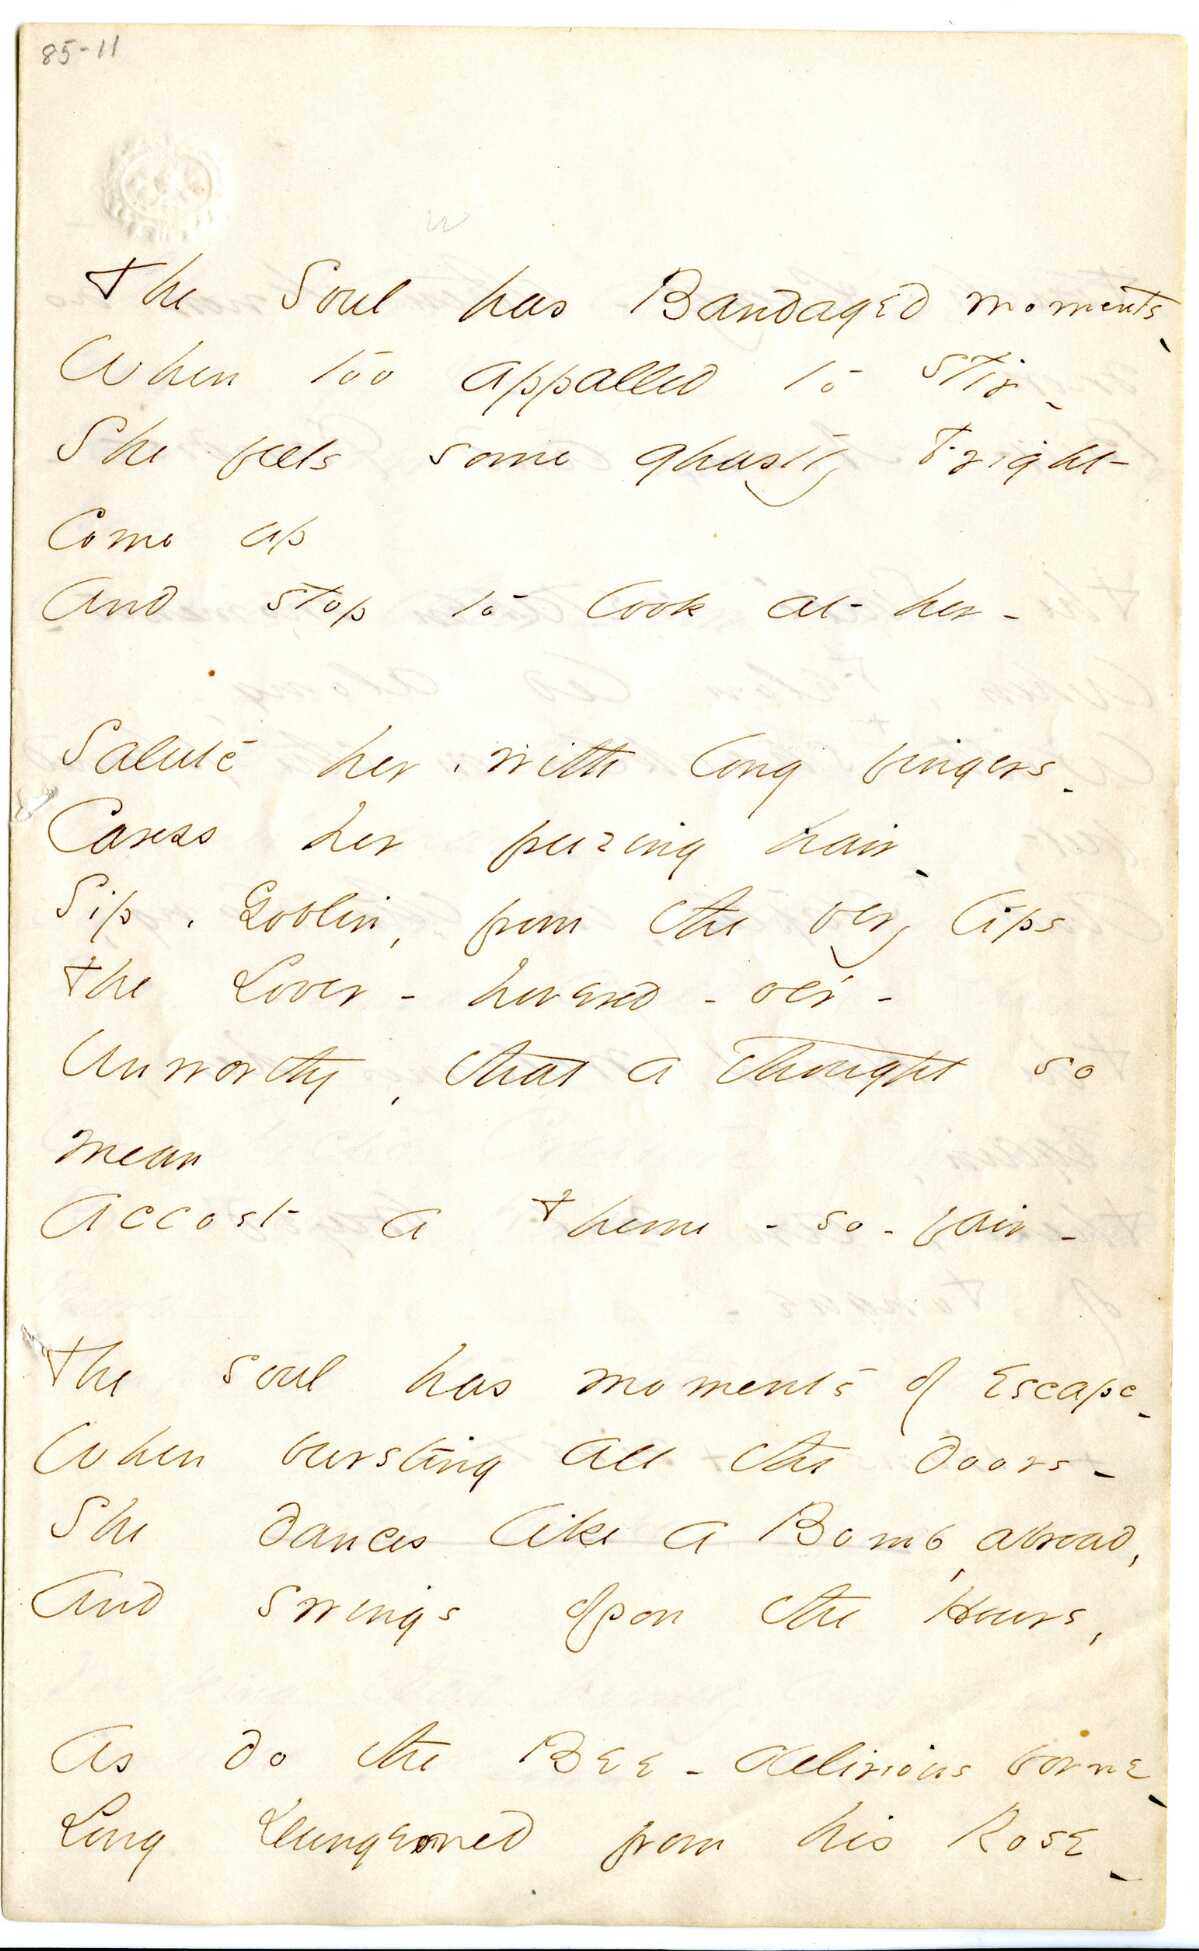 85-11
The Soul has Bandaged moments -
When too appalled to stir -
She feels some ghastly Fright
come up
And stop to look at her -
Salute her, with long fingers -
Caress her freezing hair -
Sip, Goblin, from the very lips
The Lover - hovered - o'er -
Unworthy, that a thought so
mean
Accost a Theme - so - fair -
The soul has moments of Escape -
When bursting all the doors -
She dances like a Bomb, abroad,
And swings opon the Hours,
As do the Bee - delirious borne -
Long Dungeoned from his Rose -